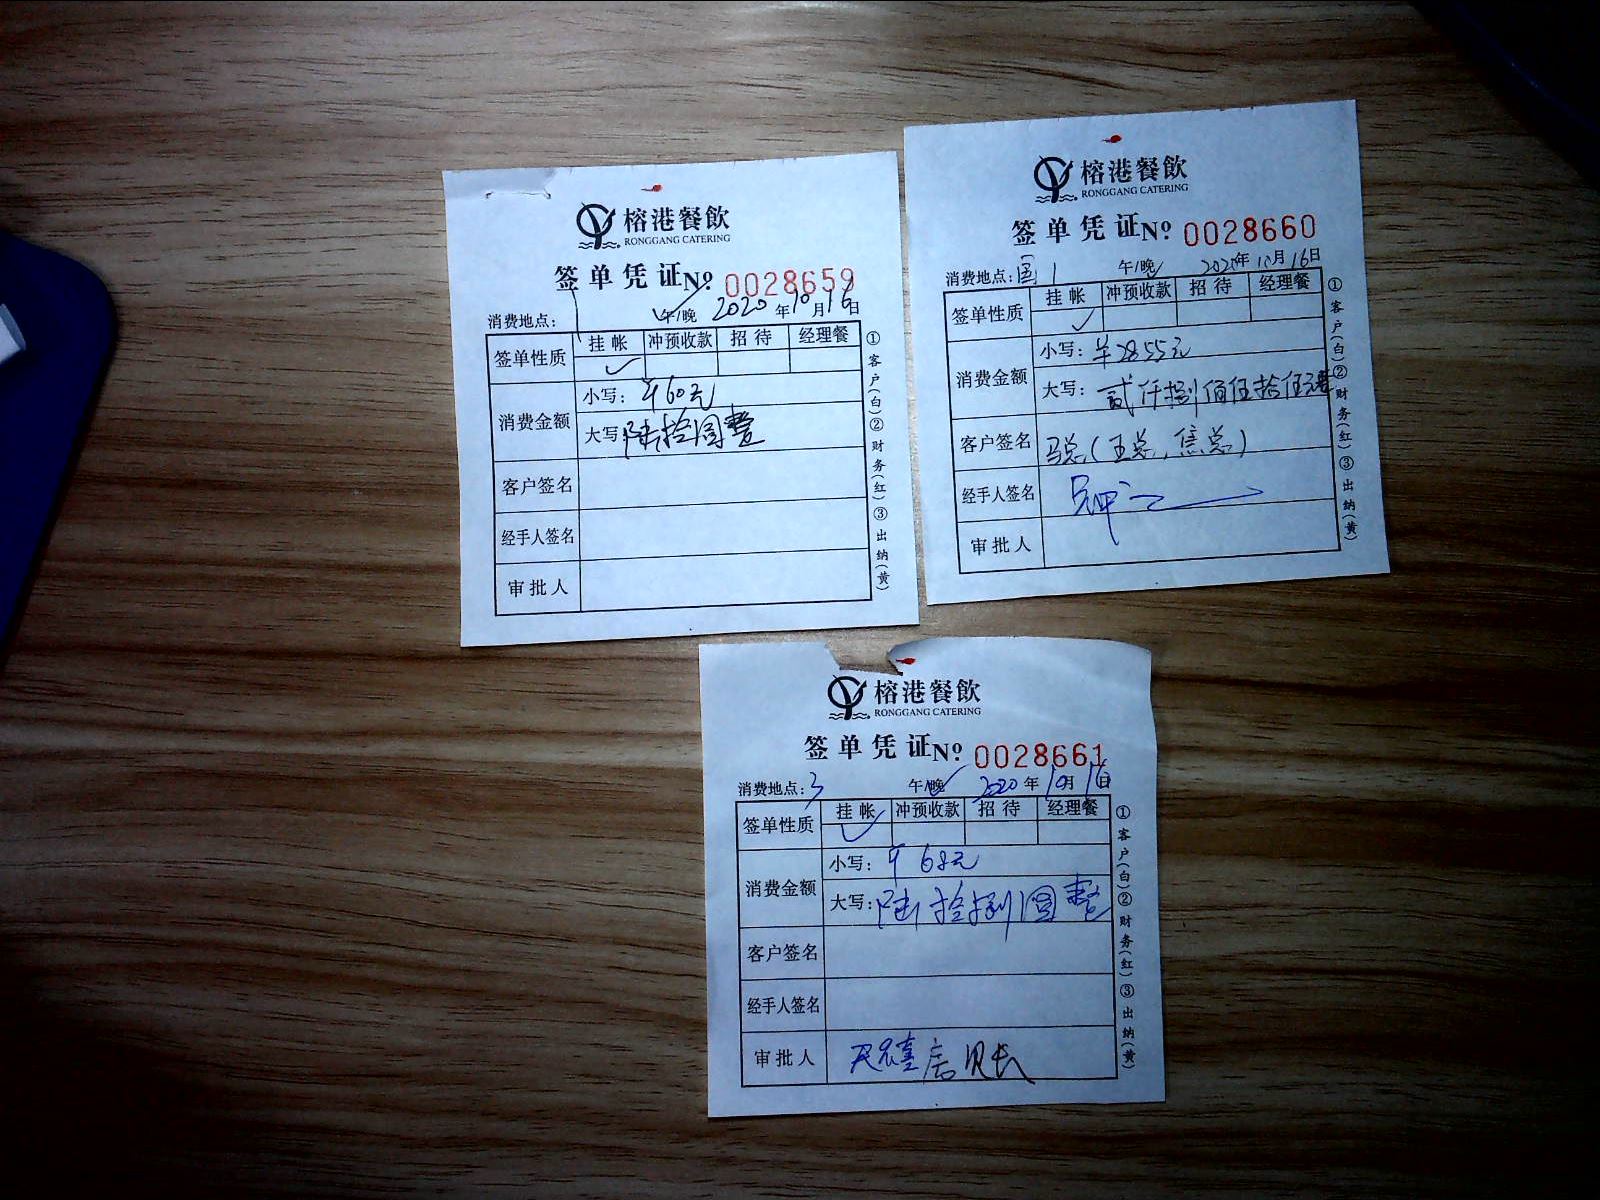 榕港餐飲
RONGGANG CATERING
签单凭证 № 0028659
消费地点: 午/晚 2020年10月16日
签单性质 挂帐 冲预收款 招待 经理餐
消费金额 小写: ¥60元
大写: 陆拾圆整
客户签名
经手人签名
审批人
①客户(白)②财务(红)③出纳(黄)
榕港餐飲
RONGGANG CATERING
签单凭证 № 0028660
消费地点: 1 午/晚 2020年10月16日
签单性质 挂帐 冲预收款 招待 经理餐
消费金额 小写: ¥2855元
大写: 贰仟捌佰伍拾伍元整
客户签名 马总(王总,焦总)
经手人签名
审批人
①客户(白)②财务(红)③出纳(黄)
榕港餐飲
RONGGANG CATERING
签单凭证 № 0028661
消费地点: 3 午/晚 2020年10月16日
签单性质 挂帐 冲预收款 招待 经理餐
消费金额 小写: ¥68元
大写: 陆拾捌圆整
客户签名
经手人签名
审批人
①客户(白)②财务(红)③出纳(黄)